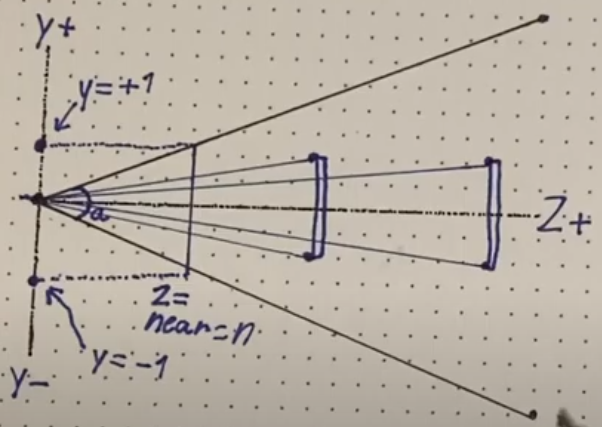 y+
y=+1
a
Z+
z=
near=n
y=-1
y-